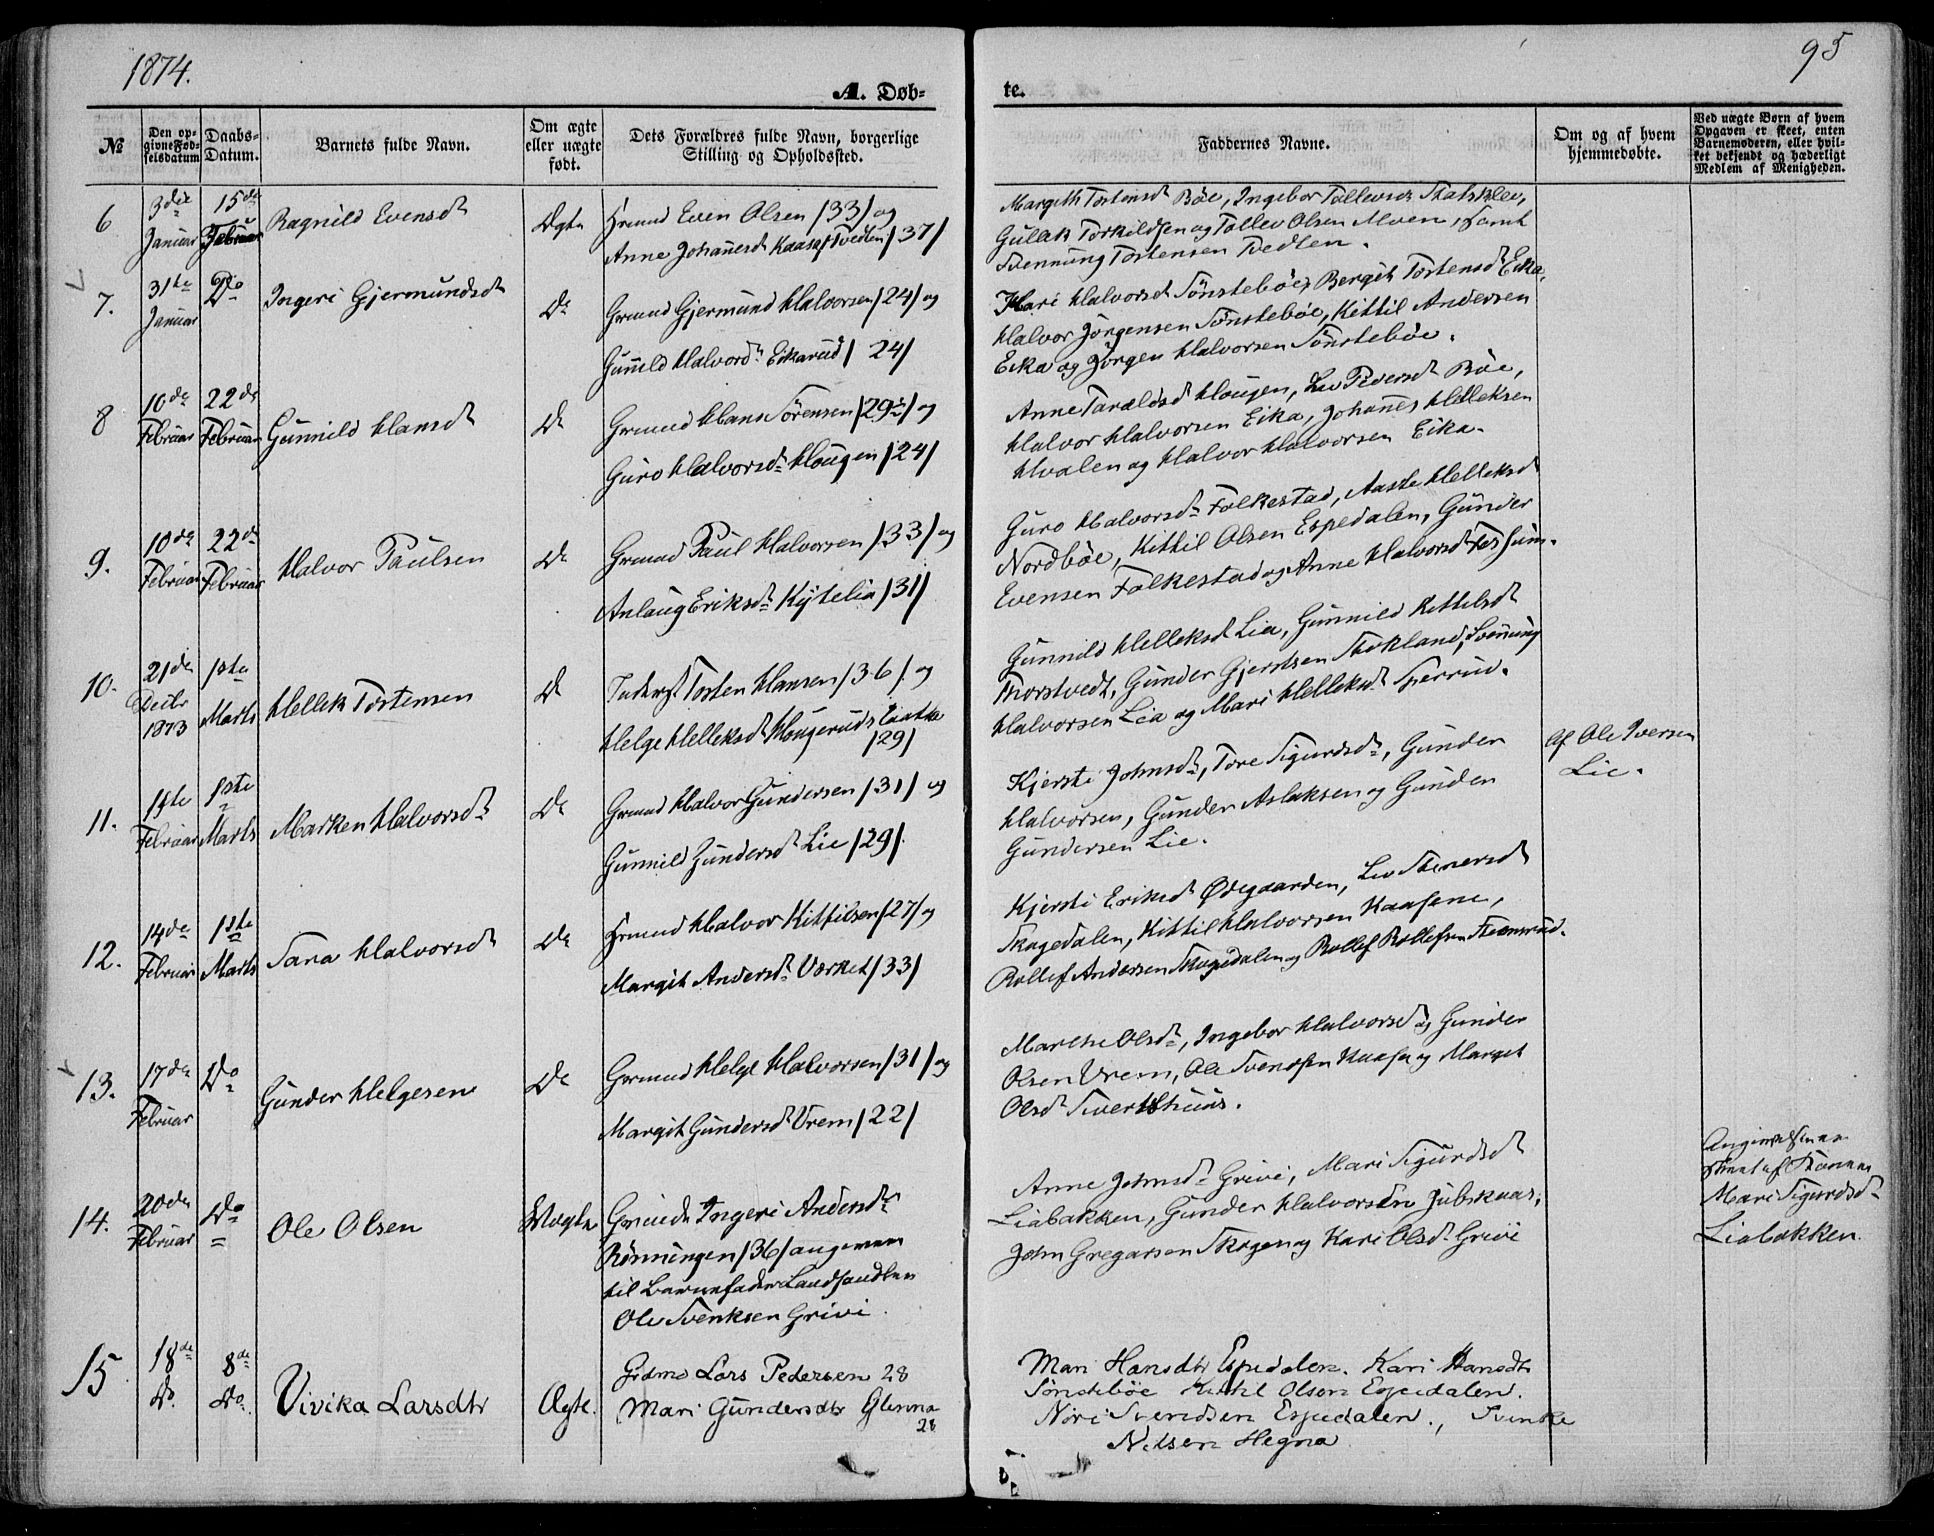 1874.
95
A. Døb-
te.
№
Den op-
givne Fød-
selsdatum
Daabs-
Datum.
Barnets fulde Navn.
Om ægte
eller uægte
født.
Dets Forældres fulde Navn, borgerlige
Stilling og Opholdssted.
Faddernes Navne.
Om og af hvem
hjemmedøbte.
Ved uægte Børn af hvem
Opgaven er skeet, enten
Barnemoderen, eller hvil-
ket bekjendt og hæderligt
Medlem af Menigheden.
6
3die
Januar
15de
Februar
Ragnild Evensdt
Ægte
Even Olsen /33/ og
Anne Johanesdt Kaasa/Tvedten /37/
Margith Tostensdt Bøe, Ingebor Tollevsdt Skatsklev,
Gullek Torkildsen og Tollev Olsen Moen, samt
Svennung Tostensen Tvedten.
7.
31te
Januar
Do
Ingeri Gjermundsdt
Do
Grmd Gjermund Halvorsen /24/ og
Gunild Halvordt Eikarud / 24/
Kari Halvorsdt Sønstebøe, Bergit Tostensdt Eika,
Halvor Jørgensen Sønstebøe, Kittil Andersen
Eika og Jørgen Halvorsen Sønstebøe.
8
10de
Februar
22de
Februar
Gunnild Hansdt
Do
Grmd Hans Sørensen /29/ og
Guro Halvorsdt Hougen /24/
Anne Taraldsdt Hougen, Liv Pedersdt Bøe,
Halvor Halvorsen Eika, Johanes Helleksen
Hvalen og Halvor Halvorsen Eika.
9.
10de
Februar
22de
Februar
Halvor Paulsen
Do
Grmd Paul Halvorsen /33/ og
Anlaug Eriksdt Kytelia /31/
Guro Halvorsdt Folkestad, Aaste Helleksdt
Nordbøe, Kittil Olsen Espedalen, Gunder
Evensen Folkestad og Anne Halvorsdt
10.
21de
Decbr
1873
1ste
Marts
Hellek Tostensen
Do
Inderst Tosten Hansen /36/ og
Helge Helleksdt Hougerud
/29/
Gunnild Helleksdt Lia, Gunnild Kittelsdt
Thorstvedt, Gunder Gjertsen Stokland, Svennung
Halvorsen Lia og Mari Helleksdt Sperrud.
11.
Februar
1ste
Marts
Marken Halvorsdt
Do
Grmd Halvor Gundersen /31/ og
Gunnild Gundersdt Lie /29/.
Kjersti Johnsdt, Tore Sigurdsdt, Gunder
Halvorsen, Gunder Aslaksen og Gunder
Gundersen Lie.
Af Ole Iversen
Lie.
12.
14de
Februar
1ste
Marts
Sara Halvorsdt
Do
Halvor Kittilsen /27/ og
Margit Andersdt Værket /33/
Kjersti Eriksdt Ødegaarden, Liv Stenersdt
Skogedalen, Kittil Halvorsen Kaasene,
Rollef Andersen Skogedalen og Rollef Rollefsen Steenrud.
13.
17de
Februar
Do
Gunder Helgesen
Do
Grmd Helge Halvorsen /31/ og
Margit Gundersdt Vrem /22/
Marthe Olsdt, Ingebor Halvorsdt og Gunder
Olsen Vrem, Ole Svendsen Kaasa og Marget
Olsdt Sivertshuus.
14.
20de
Februar
Do
Ole Olsen
Uægte
Ingeri Andersdt
Rønningen /36/ angiven
til Barnefader Landhandler
Ole Svenksen Grivi.
Anne Johnsdt Grivi, Mari Sigurdsdt
Liabakken, Gunder Halvorsen Jubskaas,
John Gregarsen Skogen og Kari Olsdt Grivi
Mari Sigurdsdt
Liabakken.
15
18de
Do.
8de
Do.
Vivika Larsdtr
Ægte.
Lars Pedersen 28
Mari Gundersdtr Glenna
28
Mari Hansdtr Espedalen. Kari Hansdtr
Sønstebøe Kittil Olsen Espedalen.
Nori Svendsen Espedalen., Svenke
Nilsen Hegna